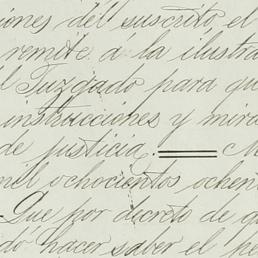 iones del suscrito el
remite á la ilustra
l Juzgado para qu
instrucciones y mira
de justicia. M
mil ochocientos ochen
Que por decreto de q
dó hacer saber el pe